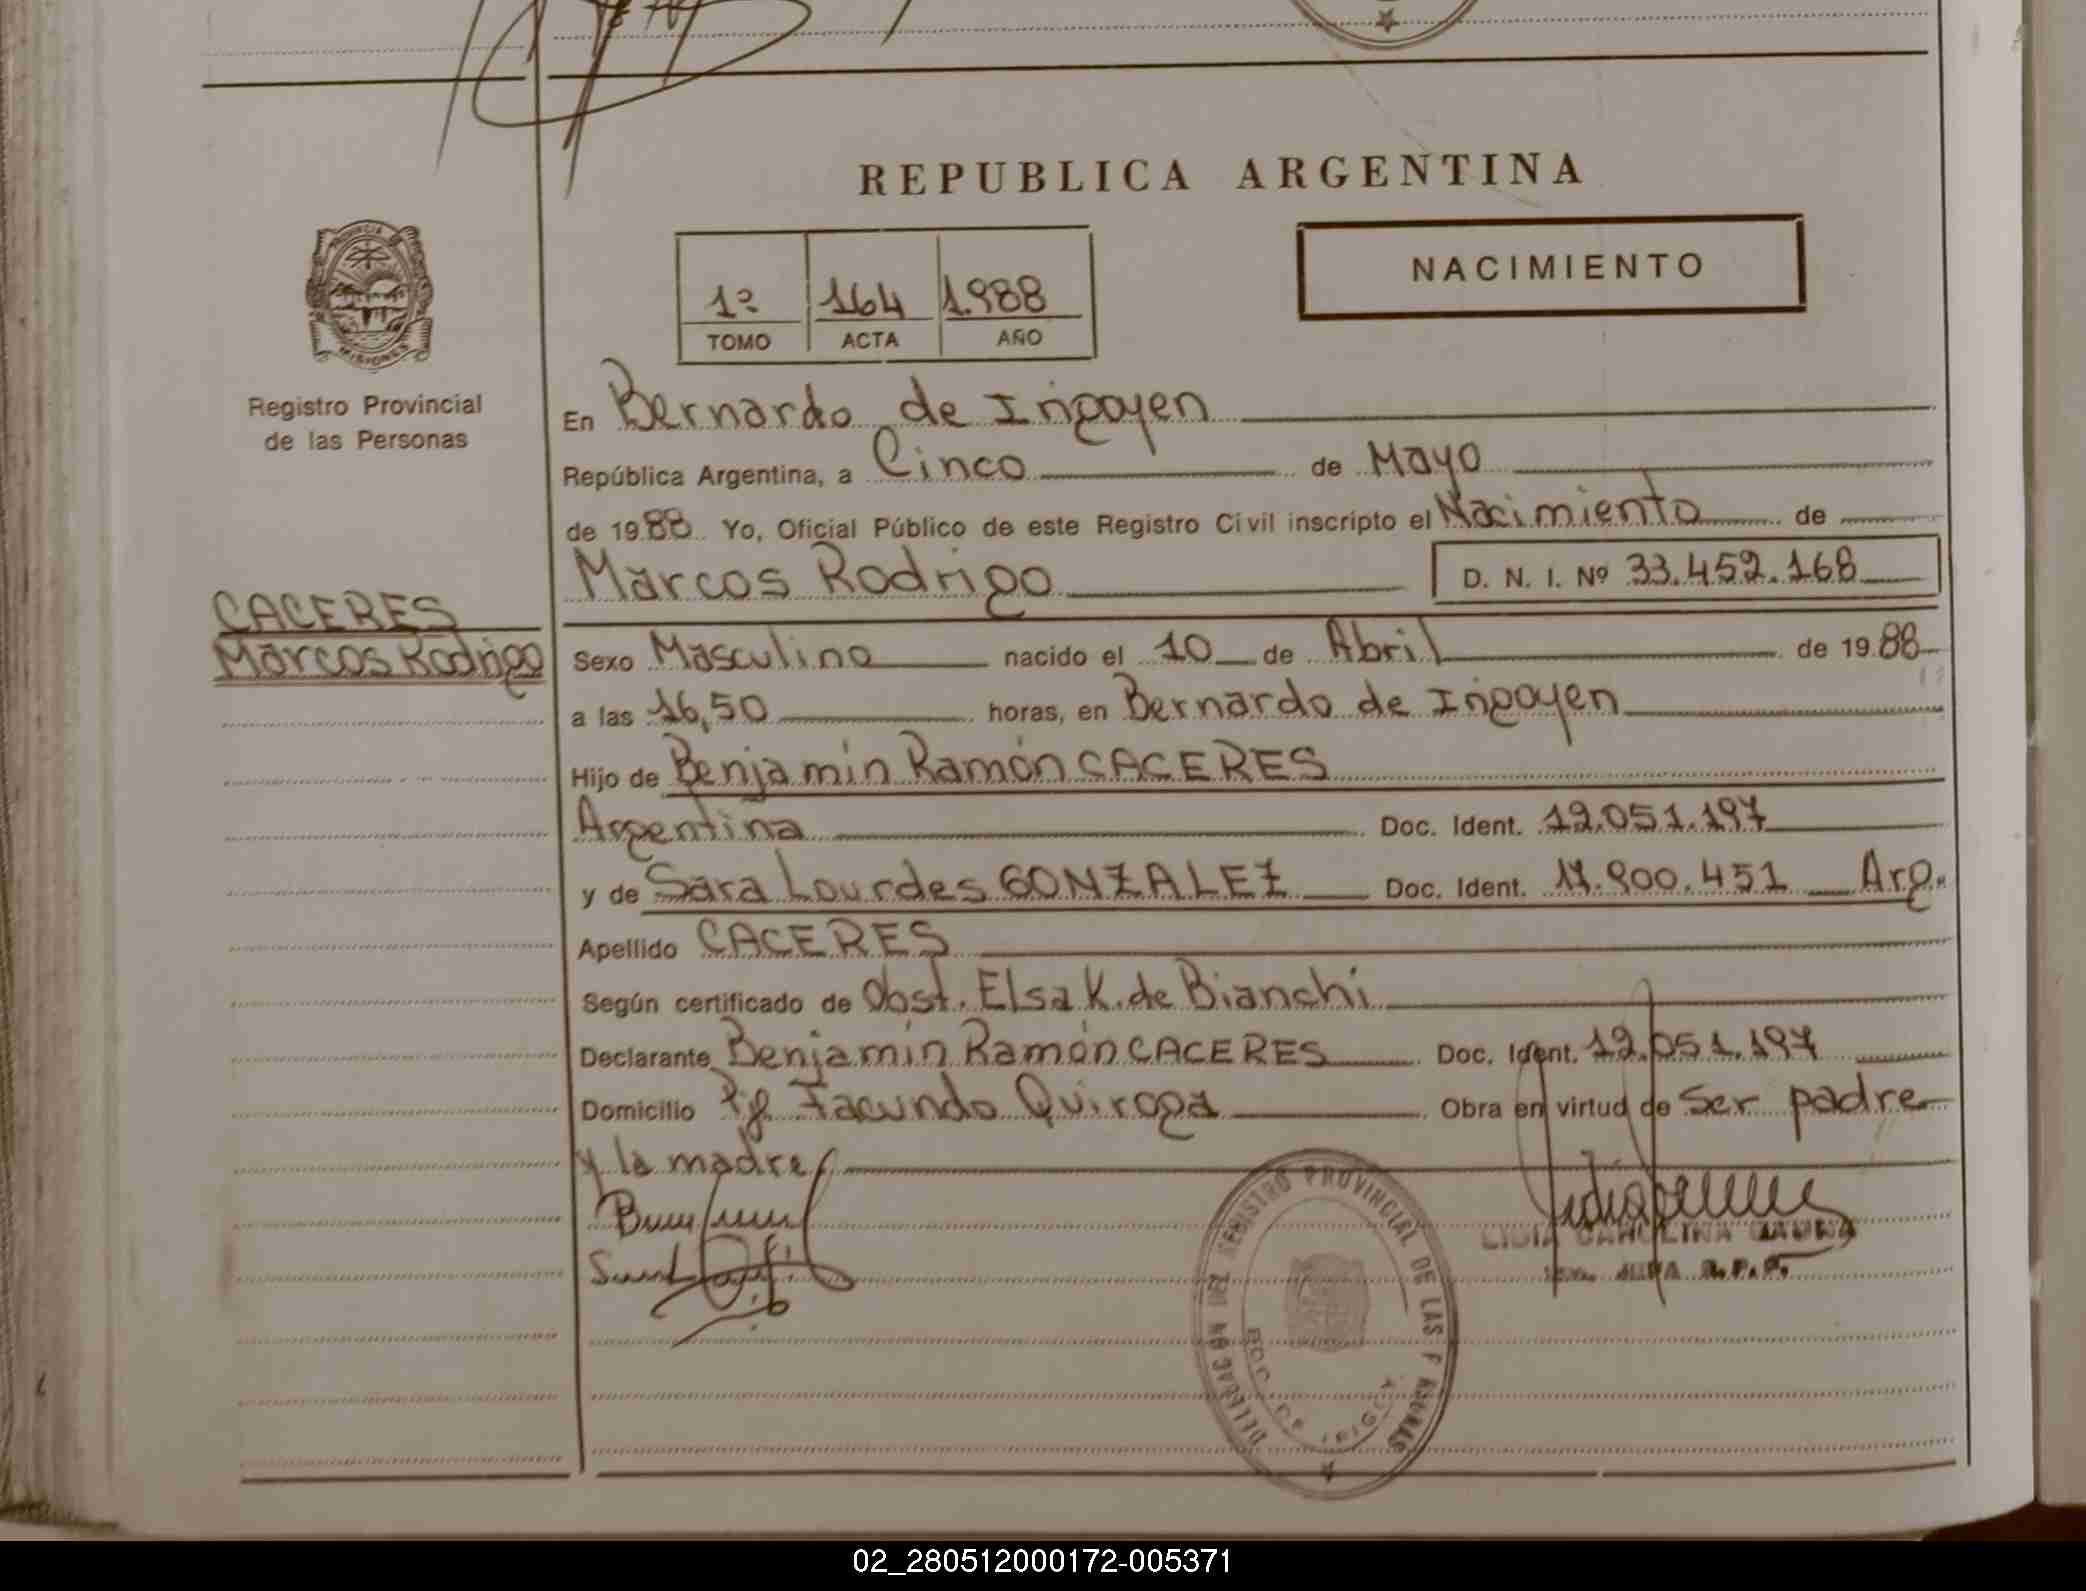 REPUBLICA ARGENTINA
NACIMIENTO
1º 164 1.988
TOMO ACTA AÑO
PROVINCIA DE
MISIONES
Registro Provincial
de las Personas
CACERES
Marcos Rodrigo
En Bernardo de Irigoyen
República Argentina, a Cinco de Mayo
de 1988 Yo, Oficial Público de este Registro Civil inscripto el Nacimiento de
Marcos Rodrigo D. N. I. Nº 33.452.168
Sexo Masculino nacido el 10 de Abril de 1988
a las 16,50 horas, en Bernardo de Irigoyen
Hijo de Benjamín Ramón CACERES
Argentina Doc. Ident. 12.051.197
y de Sara Lourdes GONZALEZ Doc. Ident. 17.900.451 Arg.
Apellido CACERES
Según certificado de Obst. Elsa K. de Bianchi
Declarante Benjamín Ramón CACERES Doc. Ident. 12.051.197
Domicilio Pje Facundo Quiroga Obra en virtud de Ser padre
y la madre
LIDIA CAROLINA GAUNA
R.P.P.
REGISTRO PROVINCIAL DE LAS PERSONAS
02_280512000172-005371